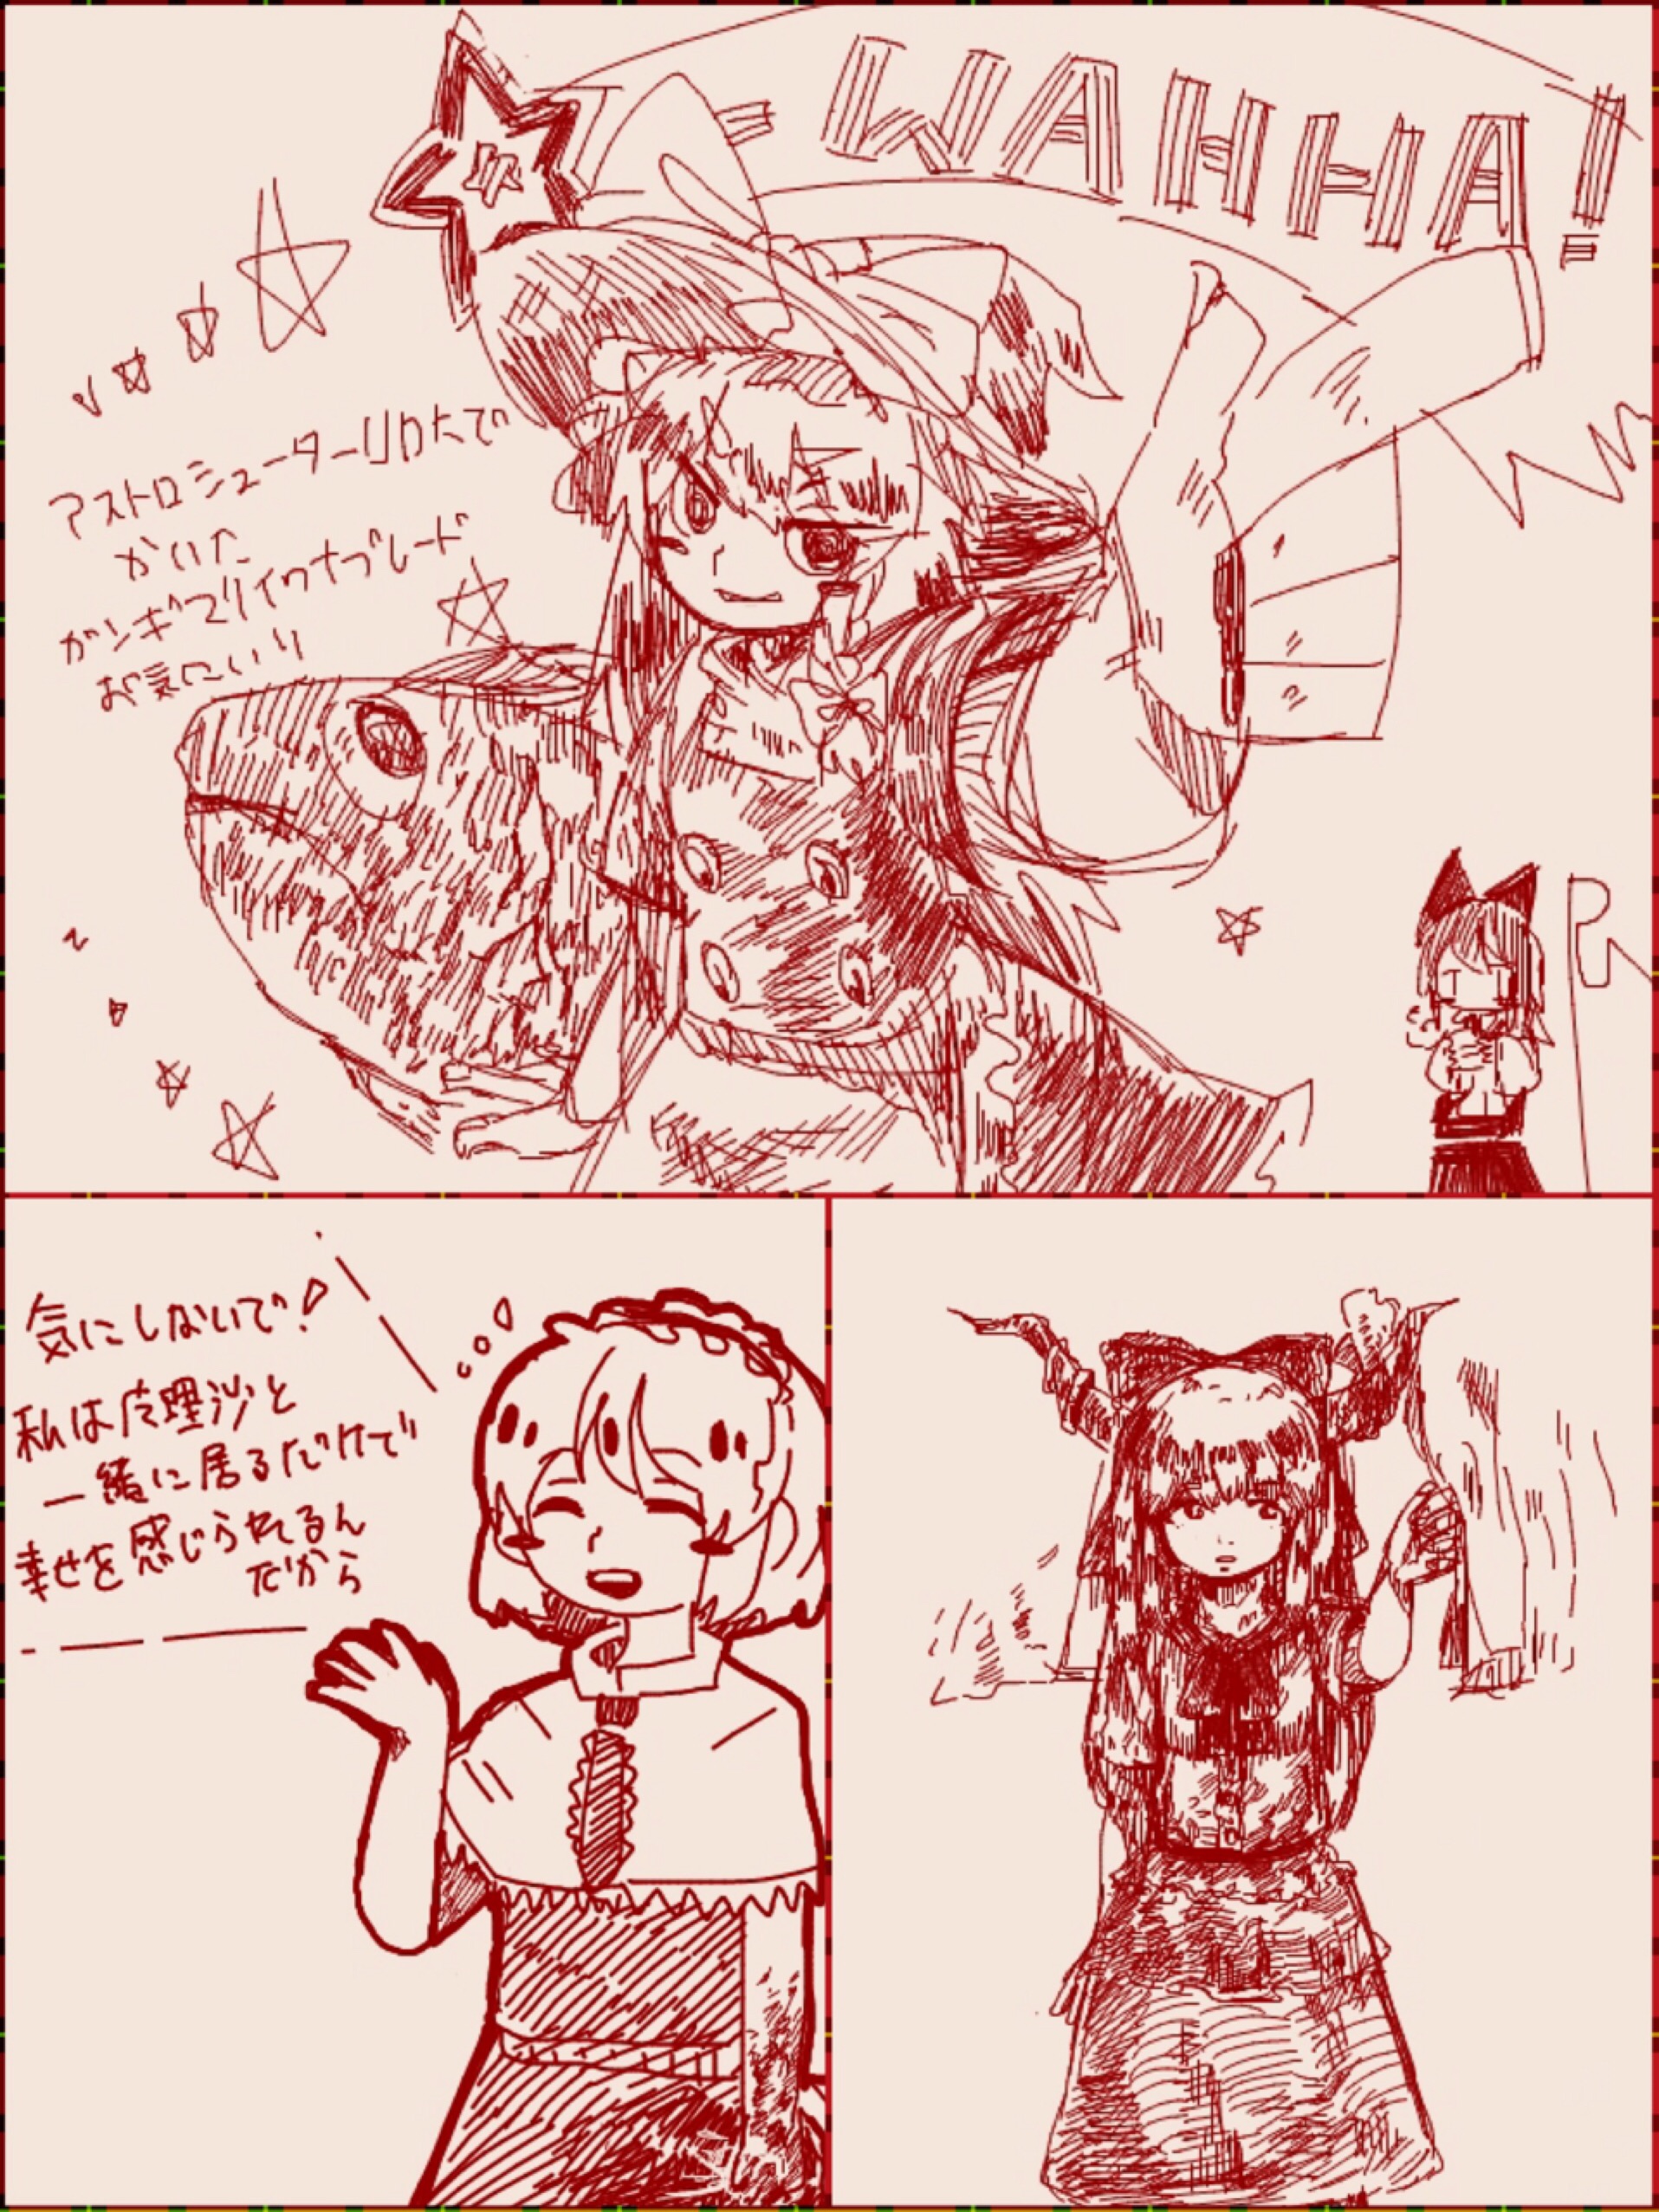 WAHHA!
アストロシューターリロ大で
かいた
ガンギマリイワナブレード
お気にいり
気にしないで!
私は广理沙と
一緒に居るだけで
幸せを感じられるん
だから